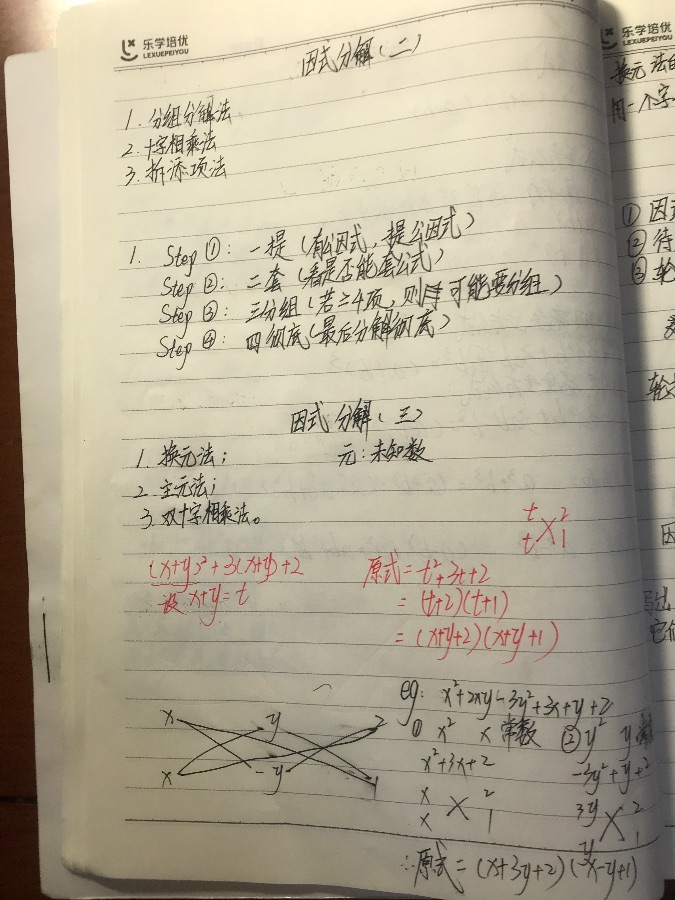 乐学培优
LEXUEPEIYOU
因式分解(二)
1. 分组分解法
2. 十字相乘法
3. 拆添项法
1. Step ①: 一提(有公因式,提公因式)
Step ②: 二套(看是否能套公式)
Step ③: 三分组(若≥4项,则可能要分组)
Step ④: 四彻底(最后分解彻底)
因式分解(三)
1. 换元法; 元:未知数
2. 主元法;
3. 双十字相乘法。
t 2
t X 1
(x+y)²+3(x+y)+2 原式=t²+3t+2
设 x+y=t =(t+2)(t+1)
=(x+y+2)(x+y+1)
eg: x²+2xy-3y²+3x+y+2
x y 2
x -y 1
① x² x 常数 ② y² y
x²+3x+2 -3y²+y+2
x 2 3y 2
x X 1 -y X 1
∴原式=(x+3y+2)(x-y+1)
乐学培优
LEXUEPEIYOU
换元法
用一个字
① 因式
② 待
③ 轮
轮
因
写出
它们